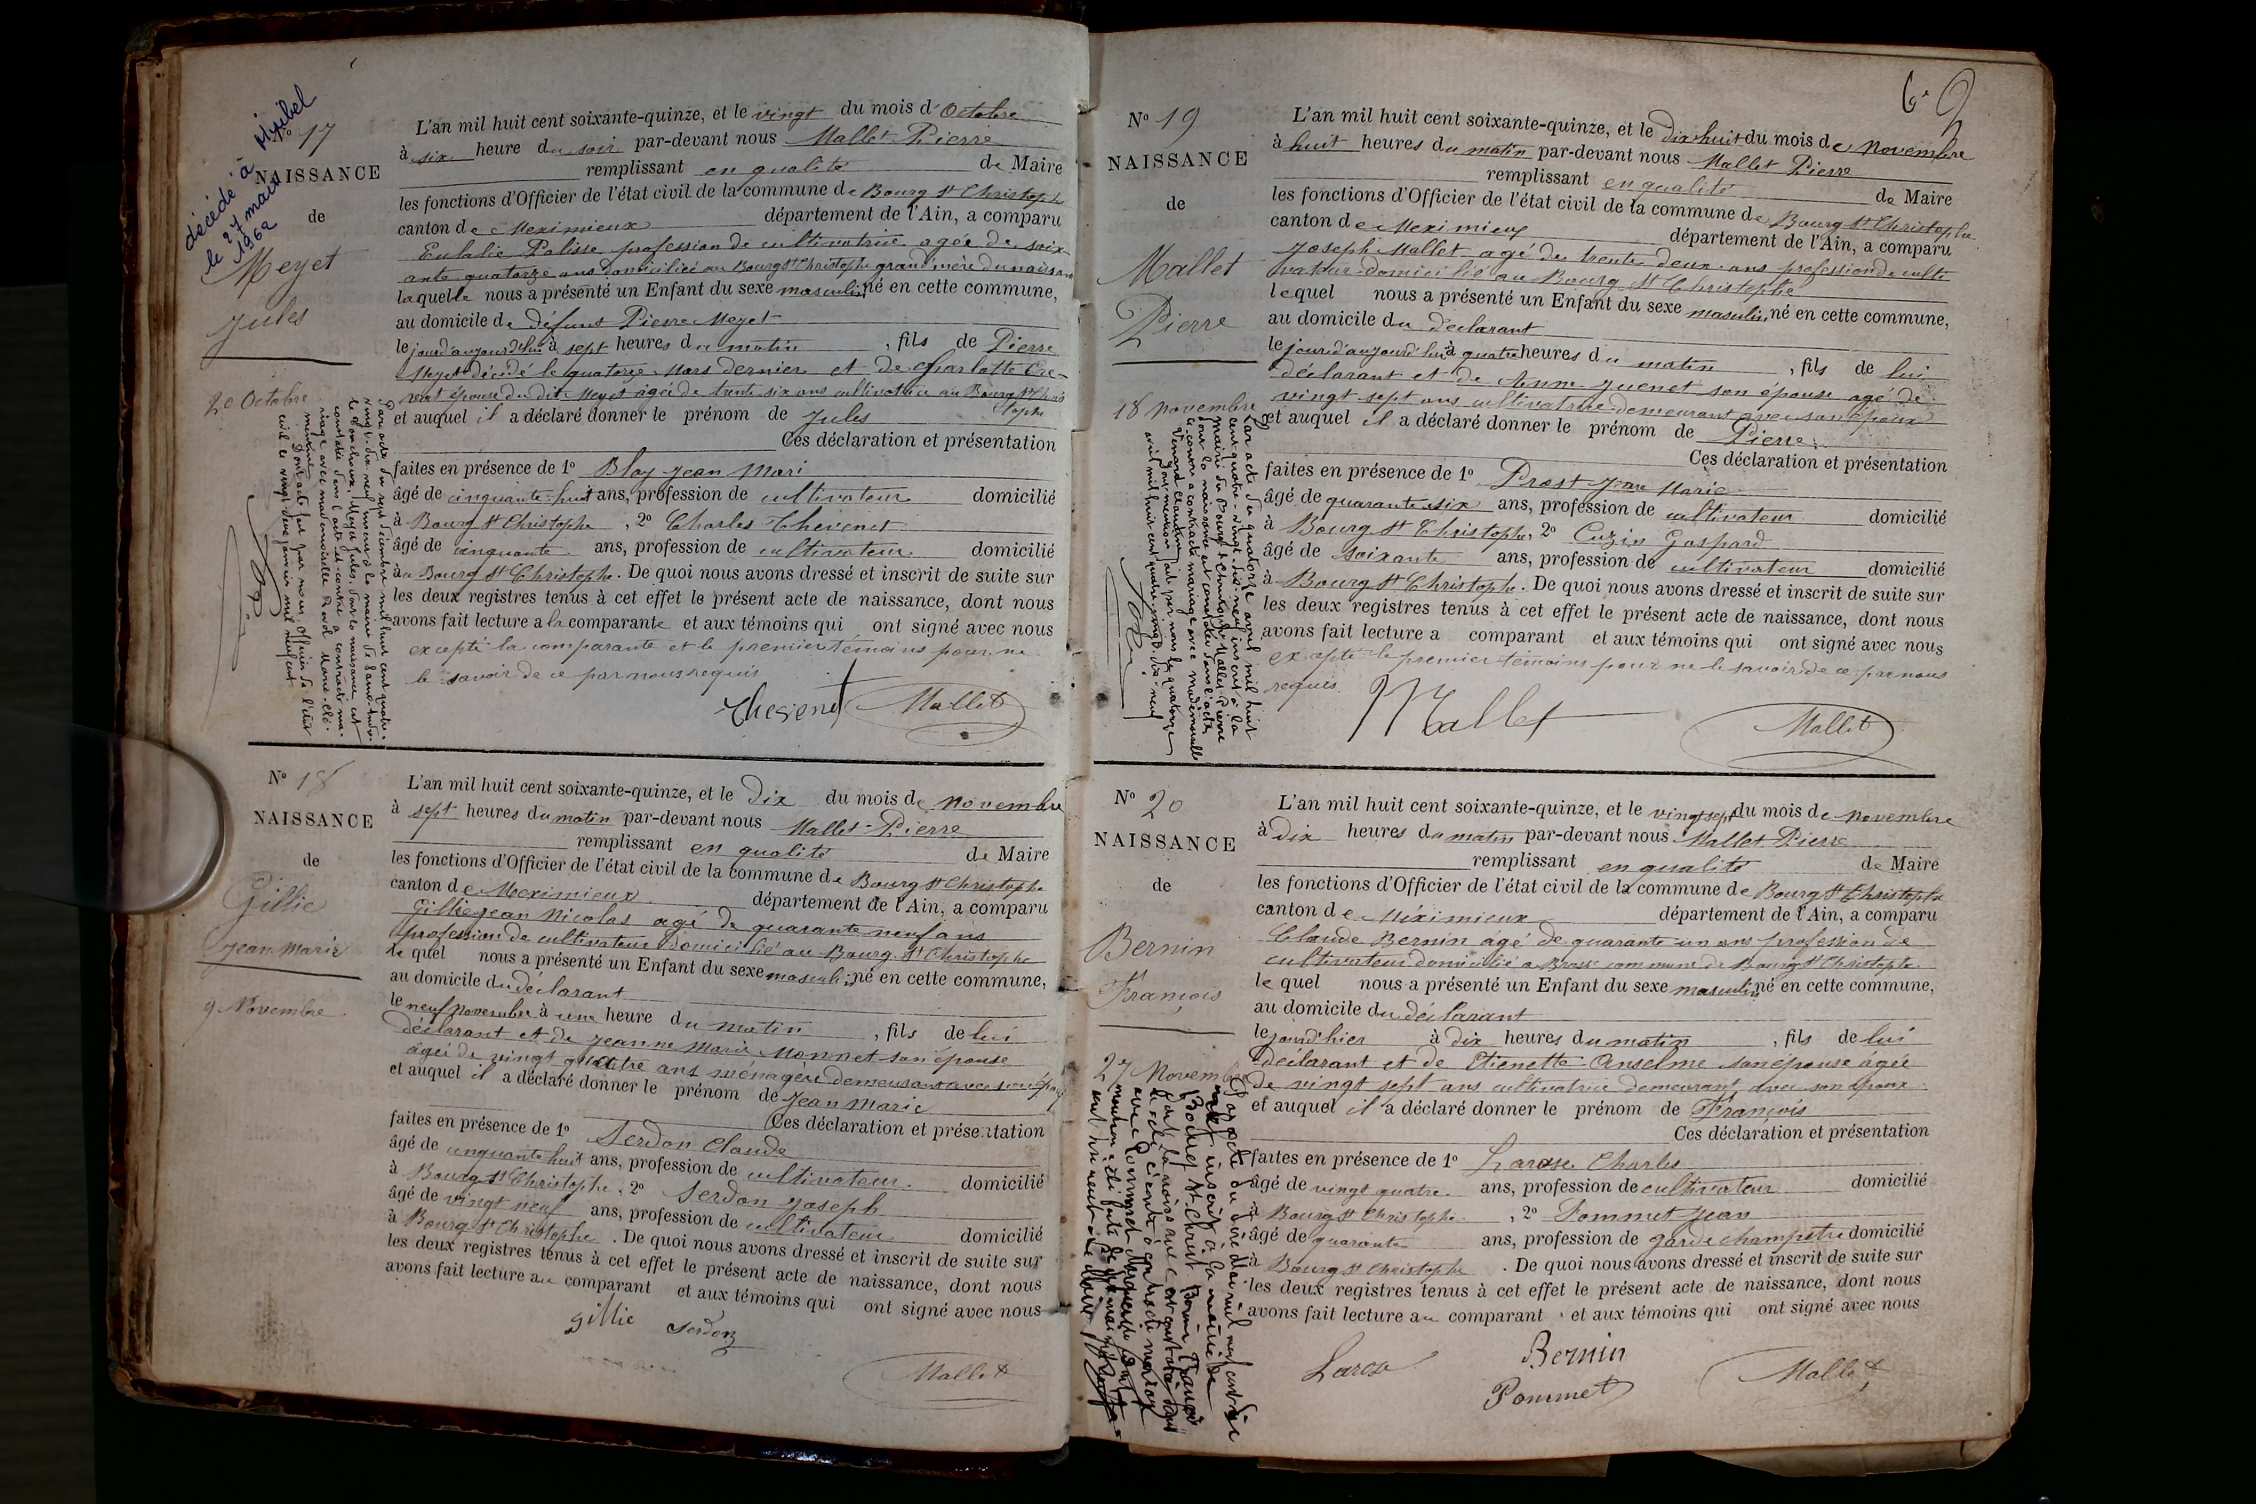 décédé à Miribel
le 27 mars
1962
Nº 17
NAISSANCE
de
Meyet
Jules
20 Octobre
L'an mil huit cent soixante-quinze, et le vingt du mois d'Octobre
à six heure du soir par-devant nous Mallet Pierre
remplissant en qualité de Maire
les fonctions d'Officier de l'état civil de la commune de Bourg St Christophe
canton de Meximieux département de l'Ain, a comparu
Eulalie Palisse profession de cultivatrice agée de soix
ante quatorze ans domiciliée au Bourg St Christophe grand mère du naissant
laquelle nous a présenté un Enfant du sexe masculin, né en cette commune,
au domicile de défunt Pierre Meyet
le jourd'aujourd'hui à sept heures du matin, fils de Pierre
Meyet décédé le quatorze Mars dernier et de Charlotte
épouse du dit Meyet âgée de trente six ans cultivatrice au Bourg St Chris
tophe
et auquel il a déclaré donner le prénom de Jules
Ces déclaration et présentation
faites en présence de 1º Blay Jean Mari
âgé de cinquante-huit ans, profession de cultivateur domicilié
à Bourg St Christophe, 2º Charles Thevenet
âgé de cinquante ans, profession de cultivateur domicilié
à Bourg St Christophe. De quoi nous avons dressé et inscrit de suite sur
les deux registres tenus à cet effet le présent acte de naissance, dont nous
avons fait lecture a la comparante et aux témoins qui ont signé avec nous
excepté la comparante et le premier témoins pour ne
le savoir de ce par nous requis
Thevenet Mallet
Par acte du sept décembre mil huit cent quatre-
vingt-dix neuf inscrit à la mairie de
Meyet Jules, dont la naissance est
constatée dans l'acte ci-contre a contracté ma-
riage avec mademoiselle Marie
Dont acte fait par nous, Officier de l'état
civil le vingt deux janvier mil neuf cent
Nº 18
NAISSANCE
de
Gillie
Jean Marie
9 Novembre
L'an mil huit cent soixante-quinze, et le Dix du mois de Novembre
à sept heures du matin par-devant nous Mallet-Pierre
remplissant en qualité de Maire
les fonctions d'Officier de l'état civil de la commune de Bourg St Christophe
canton de Meximieux département de l'Ain, a comparu
Gillie Jean Nicolas agé de quarante neuf ans
profession de cultivateur domicilié au Bourg St Christophe
Le quel nous a présenté un Enfant du sexe masculin, né en cette commune,
au domicile du déclarant
le neuf novembre à une heure du matin, fils de lui
déclarant et de Jeanne Marie Monnet son épouse
âgée de vingt quatre ans ménagère demeurant avec son épou
et auquel il a déclaré donner le prénom de Jean Marie
Ces déclaration et présentation
faites en présence de 1º Serdon Claude
âgé de cinquante huit ans, profession de cultivateur domicilié
à Bourg St Christophe, 2º Serdon Joseph
âgé de vingt neuf ans, profession de cultivateur domicilié
à Bourg St Christophe. De quoi nous avons dressé et inscrit de suite sur
les deux registres tenus à cet effet le présent acte de naissance, dont nous
avons fait lecture au comparant et aux témoins qui ont signé avec nous
gillie Serdon
Mallet
Nº 19
NAISSANCE
de
Mallet
Pierre
18 Novembre
L'an mil huit cent soixante-quinze, et le dix huit du mois de Novembre
à huit heures du matin par-devant nous Mallet Pierre
remplissant en qualité de Maire
les fonctions d'Officier de l'état civil de la commune de Bourg St Christophe
canton de Meximieux département de l'Ain, a comparu
Joseph Mallet agé de trente deux ans profession de culti
vateur domicilié au Bourg St Christophe
lequel nous a présenté un Enfant du sexe masculin, né en cette commune,
au domicile du déclarant
le jourd'aujourd'hui à quatre heures du matin, fils de lui
déclarant et de Anne Juenet son épouse agé de
vingt sept ans cultivatrice demeurant avec son époux
et auquel il a déclaré donner le prénom de Pierre
Ces déclaration et présentation
faites en présence de 1º Prost Jean Marie
âgé de quarante six ans, profession de cultivateur domicilié
à Bourg St Christophe, 2º Cuzin Gaspard
âgé de soixante ans, profession de cultivateur domicilié
à Bourg St Christophe. De quoi nous avons dressé et inscrit de suite sur
les deux registres tenus à cet effet le présent acte de naissance, dont nous
avons fait lecture a comparant et aux témoins qui ont signé avec nous
excepté le premier témoins pour ne le savoir de ce par nous
requis.
Mallet Mallet
Par acte du quatorze avril mil huit
cent quatre-vingt-dix-neuf inscrit à la
mairie du Bourg St Christophe Mallet Pierre
dont la naissance est constatée dans l'acte
ci-contre a contracté mariage avec mademoiselle
Dont mention faite par nous le quatorze
avril mil huit cent quatre vingt-dix-neuf
Nº 20
NAISSANCE
de
Bernin
François
27 Novembre
L'an mil huit cent soixante-quinze, et le vingt sept du mois de Novembre
à dix heures du matin par-devant nous Mallet Pierre
remplissant en qualité de Maire
les fonctions d'Officier de l'état civil de la commune de Bourg St Christophe
canton de Méximieux département de l'Ain, a comparu
Claude Bernin âgé de quarante un ans profession de
cultivateur domicilié a commune de Bourg St Christophe
le quel nous a présenté un Enfant du sexe masculin, né en cette commune,
au domicile du déclarant
le jour d'hier à dix heures du matin, fils de lui
déclarant et de Etienette Anselme son épouse âgée
de vingt sept ans cultivatrice demeurant avec son époux
et auquel il a déclaré donner le prénom de François
Ces déclaration et présentation
faites en présence de 1º Larose Charles
âgé de vingt quatre ans, profession de cultivateur domicilié
à Bourg St Christophe, 2º Pommet Jean
âgé de quarante ans, profession de garde champetre domicilié
à Bourg St Christophe. De quoi nous avons dressé et inscrit de suite sur
les deux registres tenus à cet effet le présent acte de naissance, dont nous
avons fait lecture au comparant et aux témoins qui ont signé avec nous
Larose Bernin
Pommet Mallet